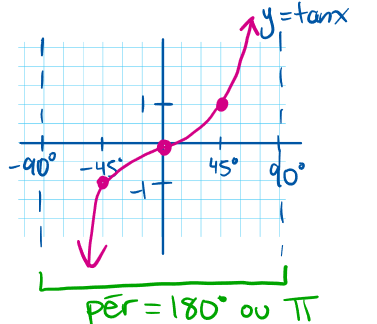 y=tanx
1
-90° -45° 45° 90°
-1
pér = 180° ou π